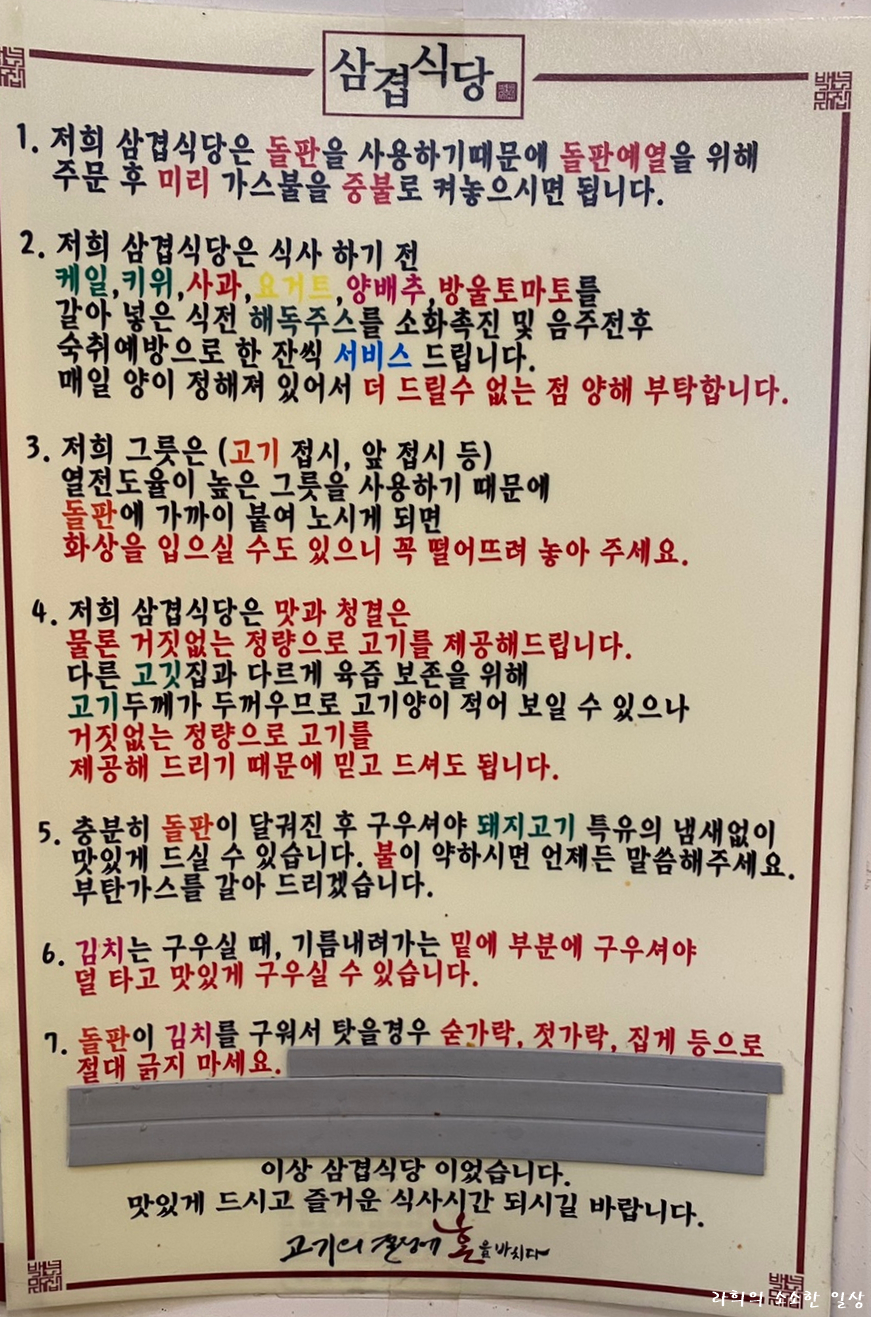 삼겹식당
1. 저희 삼겹식당은 돌판을 사용하기때문에 돌판예열을 위해
주문 후 미리 가스불을 중불로 켜놓으시면 됩니다.
2. 저희 삼겹식당은 식사 하기 전
케일,키위,사과,요거트,양배추,방울토마토를
갈아 넣은 식전 해독주스를 소화촉진 및 음주전후
숙취예방으로 한 잔씩 서비스 드립니다.
매일 양이 정해져 있어서 더 드릴수 없는 점 양해 부탁합니다.
3. 저희 그릇은 (고기 접시, 앞 접시 등)
열전도율이 높은 그릇을 사용하기 때문에
돌판에 가까이 붙여 노시게 되면
화상을 입으실 수도 있으니 꼭 떨어뜨려 놓아 주세요.
4. 저희 삼겹식당은 맛과 청결은
물론 거짓없는 정량으로 고기를 제공해드립니다.
다른 고깃집과 다르게 육즙 보존을 위해
고기두께가 두꺼우므로 고기양이 적어 보일 수 있으나
거짓없는 정량으로 고기를
제공해 드리기 때문에 믿고 드셔도 됩니다.
5. 충분히 돌판이 달궈진 후 구우셔야 돼지고기 특유의 냄새없이
맛있게 드실 수 있습니다. 불이 약하시면 언제든 말씀해주세요.
부탄가스를 갈아 드리겠습니다.
6. 김치는 구우실 때, 기름내려가는 밑에 부분에 구우셔야
덜 타고 맛있게 구우실 수 있습니다.
7. 돌판이 김치를 구워서 탓을경우 숟가락, 젓가락, 집게 등으로
절대 긁지 마세요.
이상 삼겹식당 이었습니다.
맛있게 드시고 즐거운 식사시간 되시길 바랍니다.
고기의 열정에 혼을 바치다
라희의 소소한 일상